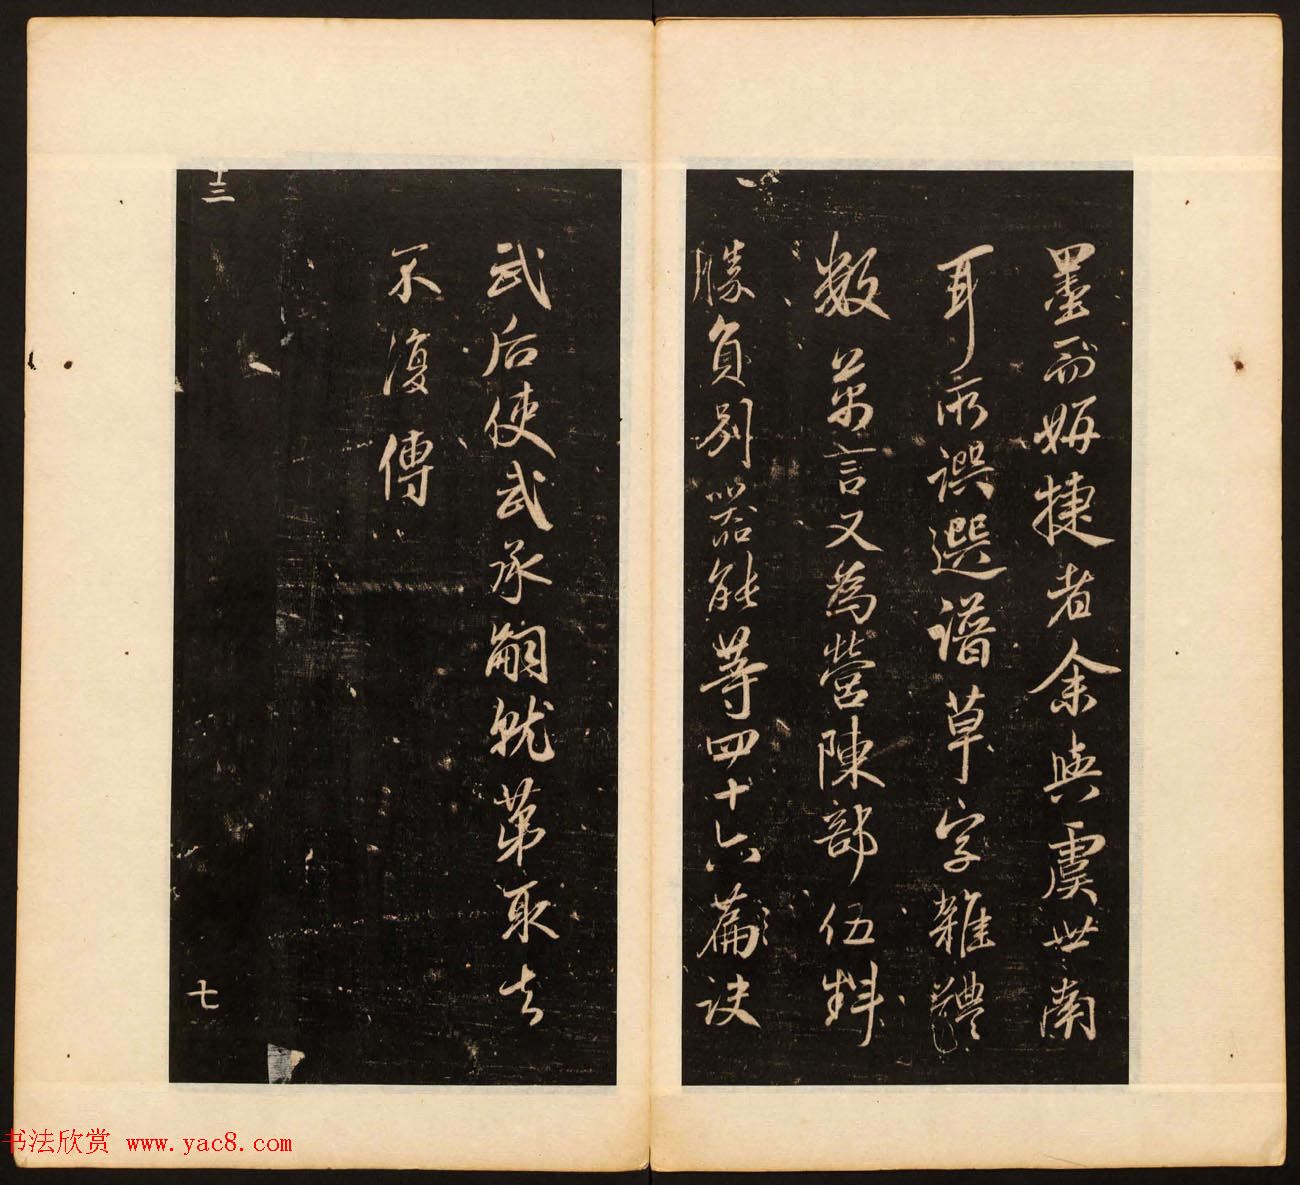 墨而妍捷者余與虞世南
耳所譔選譜草字雜體
數萬言又為營陳部伍料
勝負別器能等四十六篇訣
武后使武承嗣就第取去
不復傳
十三
七
书法欣赏 www.yac8.com